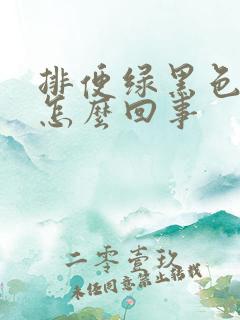 排便绿黑色
怎麼回事
二零壹玖
未经同意禁止转载